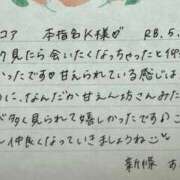 コア 本指名K様♡ RB.5.
り見たら会いたくなっちゃったと仰
ったです♡甘えられている感じは
に、なんだか甘えん坊さんみた
が多く見られて嬉しかったです○
〜仲良くなっていきましょうねこ♡
新條 あ